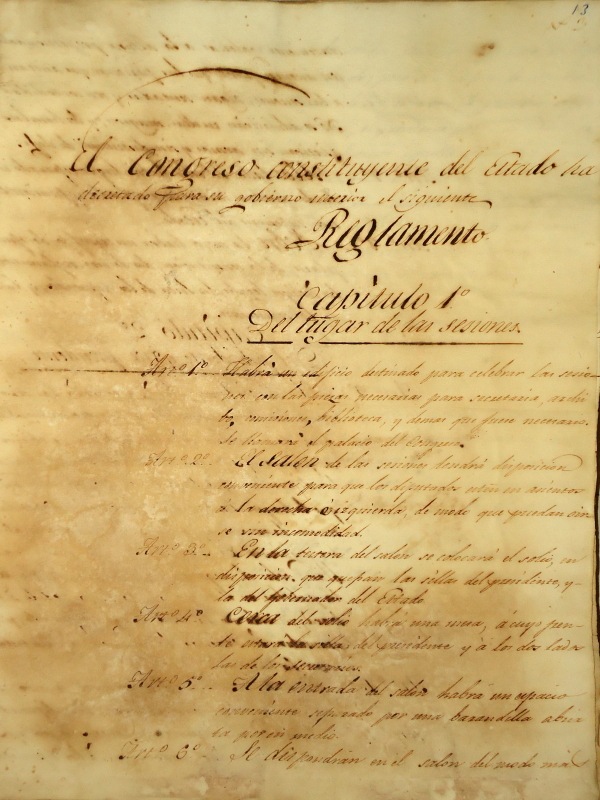 13
El Congreso constituyente del Estado ha
decretado para su gobierno interior el siguiente
Reglamento
Capitulo 1º
Del lugar de las sesiones.
Artº 1º Habrá un edificio destinado para celebrar las sesio-
nes con las piezas necesarias para secretaria, archi-
vo, comisiones, biblioteca, y demas que fuere necesario.
Se llamará el palacio del Congreso.
Artº 2º El Salon de las sesiones tendrá disposicion
conveniente para que los diputados esten en asientos
a la derecha é izquierda, de modo que puedan oir-
se sin incomodidad.
Artº 3º En la testera del salon se colocará el solio, en
disposicion que quepan las sillas del presidente, y
la del gobernador del Estado
Artº 4º Cerca del solio habrá una mesa, á cuyo fren-
te estará la silla del presidente y á los dos lados
las de los secretarios.
Artº 5º A la entrada del salon habrá un espacio
conveniente separado por una barandilla abier-
ta por en medio.
Artº 6º Se dispondrán en el salon del modo mas